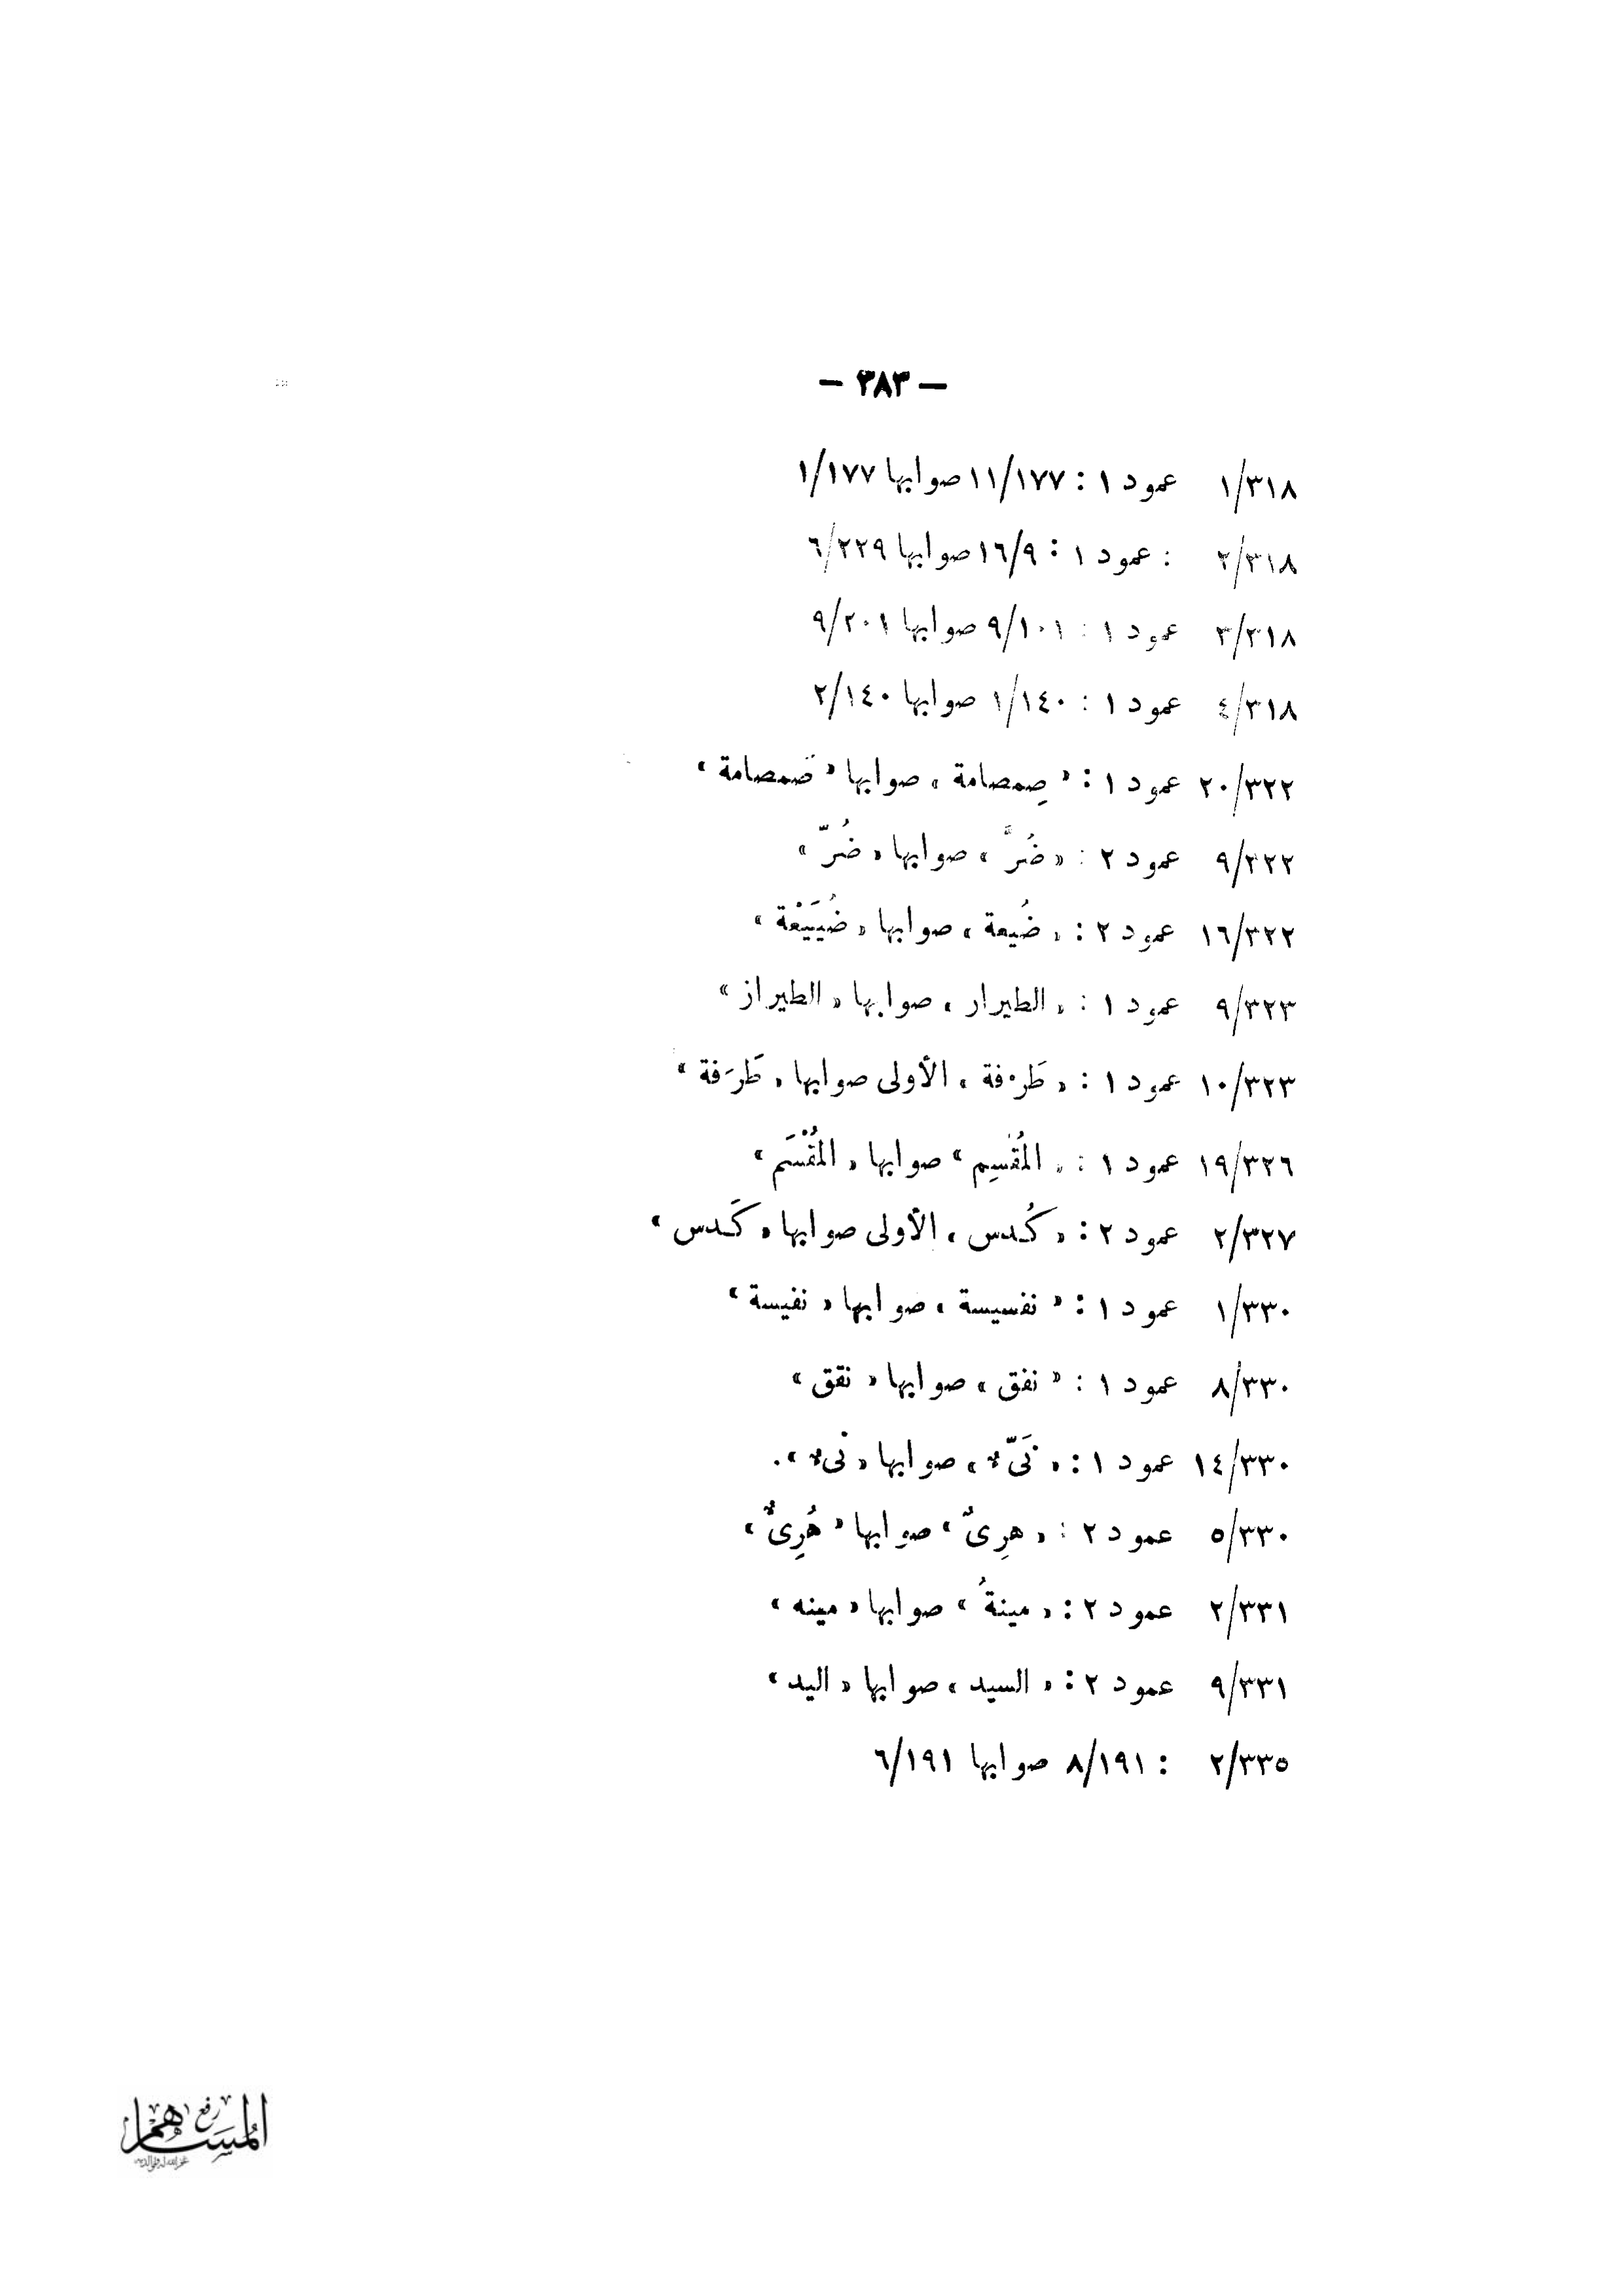 — ٣٨٣ —
١/٣١٨ عمود ١ : ١١/١٧٧ صوابها ١/١٧٧
٢/٣١٨ : عمود ١ : ١٦/٩ صوابها ٦/٢٢٩
٣/٣١٨ عمود ١ : ٩/١٠١ صوابها ٩/٢٠١
٤/٣١٨ عمود ١ : ١/١٤٠ صوابها ٢/١٤٠
٢٠/٣٢٢ عمود ١ : « صِمصامة » صوابها « ضَمصامة »
٩/٣٢٢ عمود ٢ : « ضُرَّ » صوابها « ضُرّ »
١٦/٣٢٢ عمود ٢ : « ضُيعة » صوابها « ضُيَيْعة »
٩/٣٢٣ عمود ١ : « الطيرار » صوابها « الطيراز »
١٠/٣٢٣ عمود ١ : « طَرْفة » الأولى صوابها « طَرَفة »
١٩/٣٢٦ عمود ١ : « المُقسِيم » صوابها « المُقْسَم »
٢/٣٢٧ عمود ٢ : « كُدس » الأولى صوابها « كَدس »
١/٣٣٠ عمود ١ : « نفسيسة » صوابها « نفيسة »
٨/٣٣٠ عمود ١ : « نفق » صوابها « نقق »
١٤/٣٣٠ عمود ١ : « نَىّء » صوابها « نىء » .
٥/٣٣٠ عمود ٢ : « هرِىٌ » صوابها « هُرِىٌّ »
٢/٣٣١ عمود ٢ : « مينةُ » صوابها « مينه »
٩/٣٣١ عمود ٢ : « السيد » صوابها « اليد »
٢/٣٣٥ : ٨/١٩١ صوابها ٦/١٩١